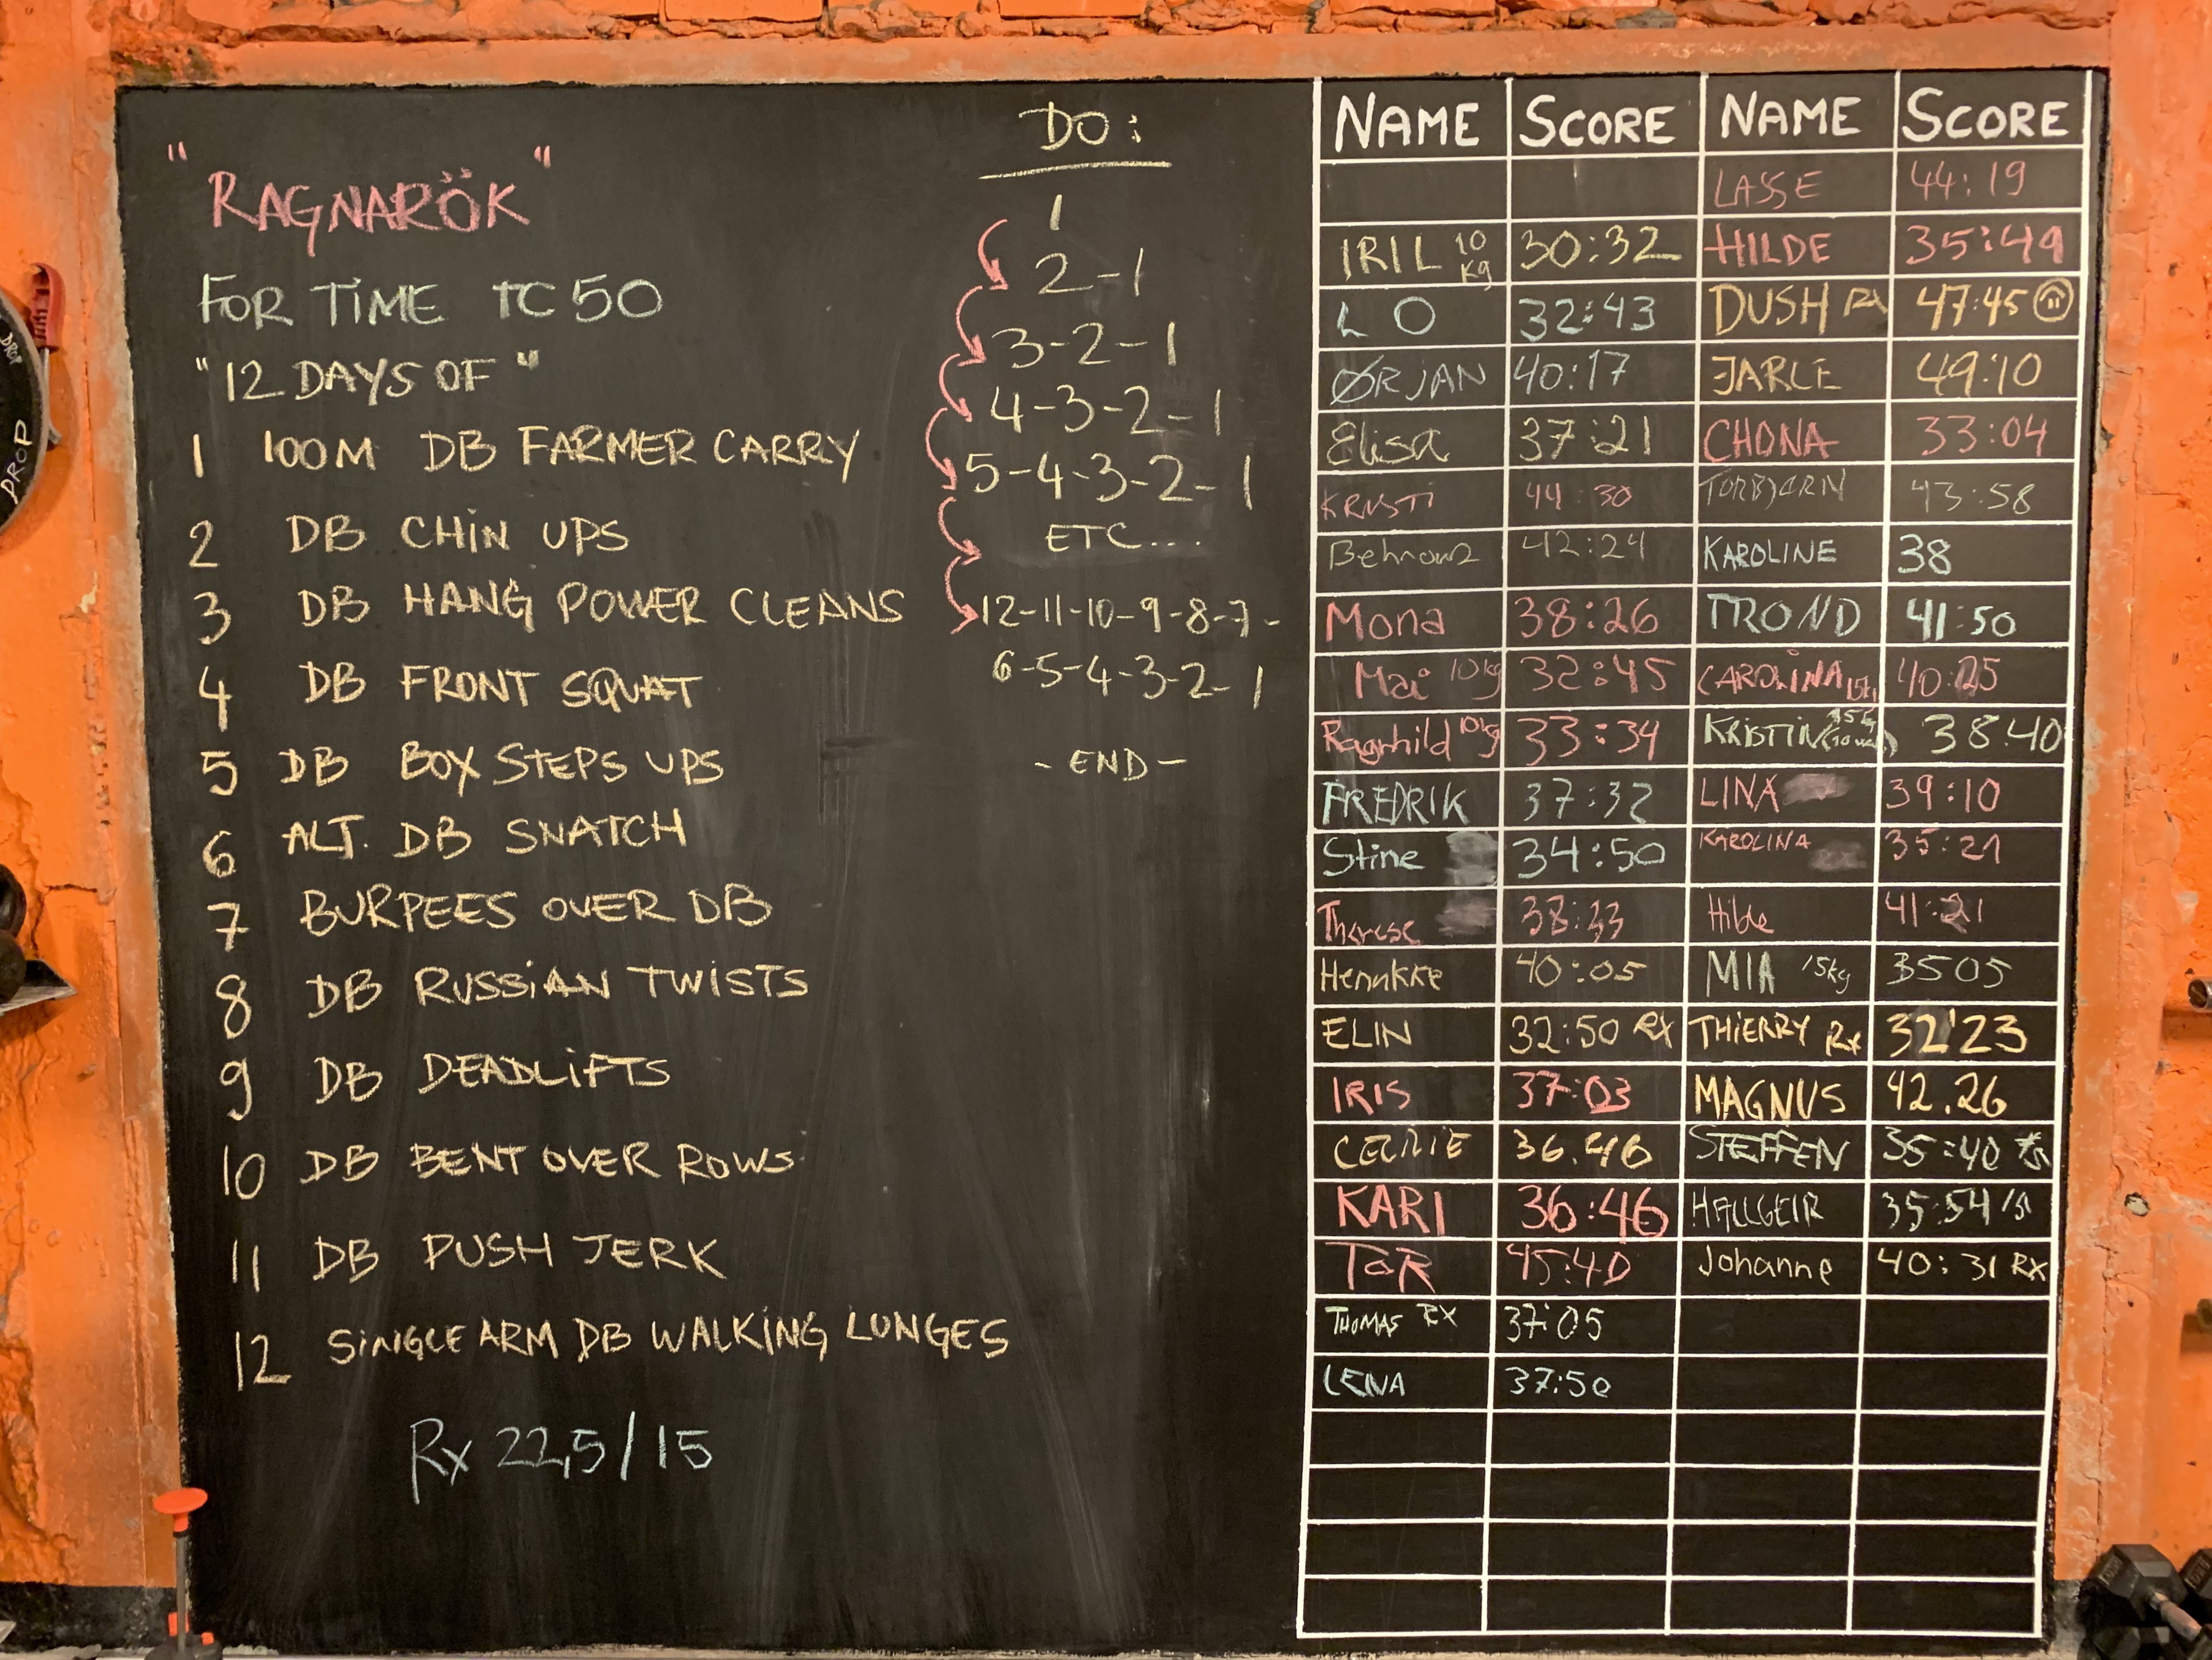 "RAGNARÖK"
FOR TIME TC 50
"12 DAYS OF"
1 100M DB FARMER CARRY
2 DB CHIN UPS
3 DB HANG POWER CLEANS
4 DB FRONT SQUAT
5 DB BOX STEPS UPS
6 ALT. DB SNATCH
7 BURPEES OVER DB
8 DB RUSSIAN TWISTS
9 DB DEADLIFTS
10 DB BENT OVER ROWS
11 DB PUSH JERK
12 SINGLE ARM DB WALKING LUNGES
Rx 22,5/15
DO:
1
2-1
3-2-1
4-3-2-1
5-4-3-2-1
ETC....
12-11-10-9-8-7-
6-5-4-3-2-1
- END -
NAME SCORE NAME SCORE
LASSE 44:19
IRIL 10 kg 30:32 HILDE 35:49
LO 32:43 DUSH Rx 47:45
ØRJAN 40:17 JARLE 49:10
Elisa 37:21 CHONA 33:04
KRISTI 44:30 TORBJØRN 43:58
Behrouz 42:24 KAROLINE 38
Mona 38:26 TROND 41:50
Mai 10kg 32:45 CAROLINA 15kg 40:25
Ragnhild 10kg 33:34 KRISTIN 38.40
FREDRIK 37:32 LINA 39:10
Stine 34:50 KAROLINA 35:21
Therese 38:33 Hilde 41:21
Henrikke 40:05 MIA 15kg 3505
ELIN 32:50 RX THIERRY Rx 32'23
IRIS 37:03 MAGNUS 42.26
CECILIE 36.46 STEFFEN 35:40
KARI 36:46 HALLGEIR 35:54
TOR 45:40 Johanne 40:31 RX
THOMAS RX 37:05
LENA 37:50
DROP
DROP